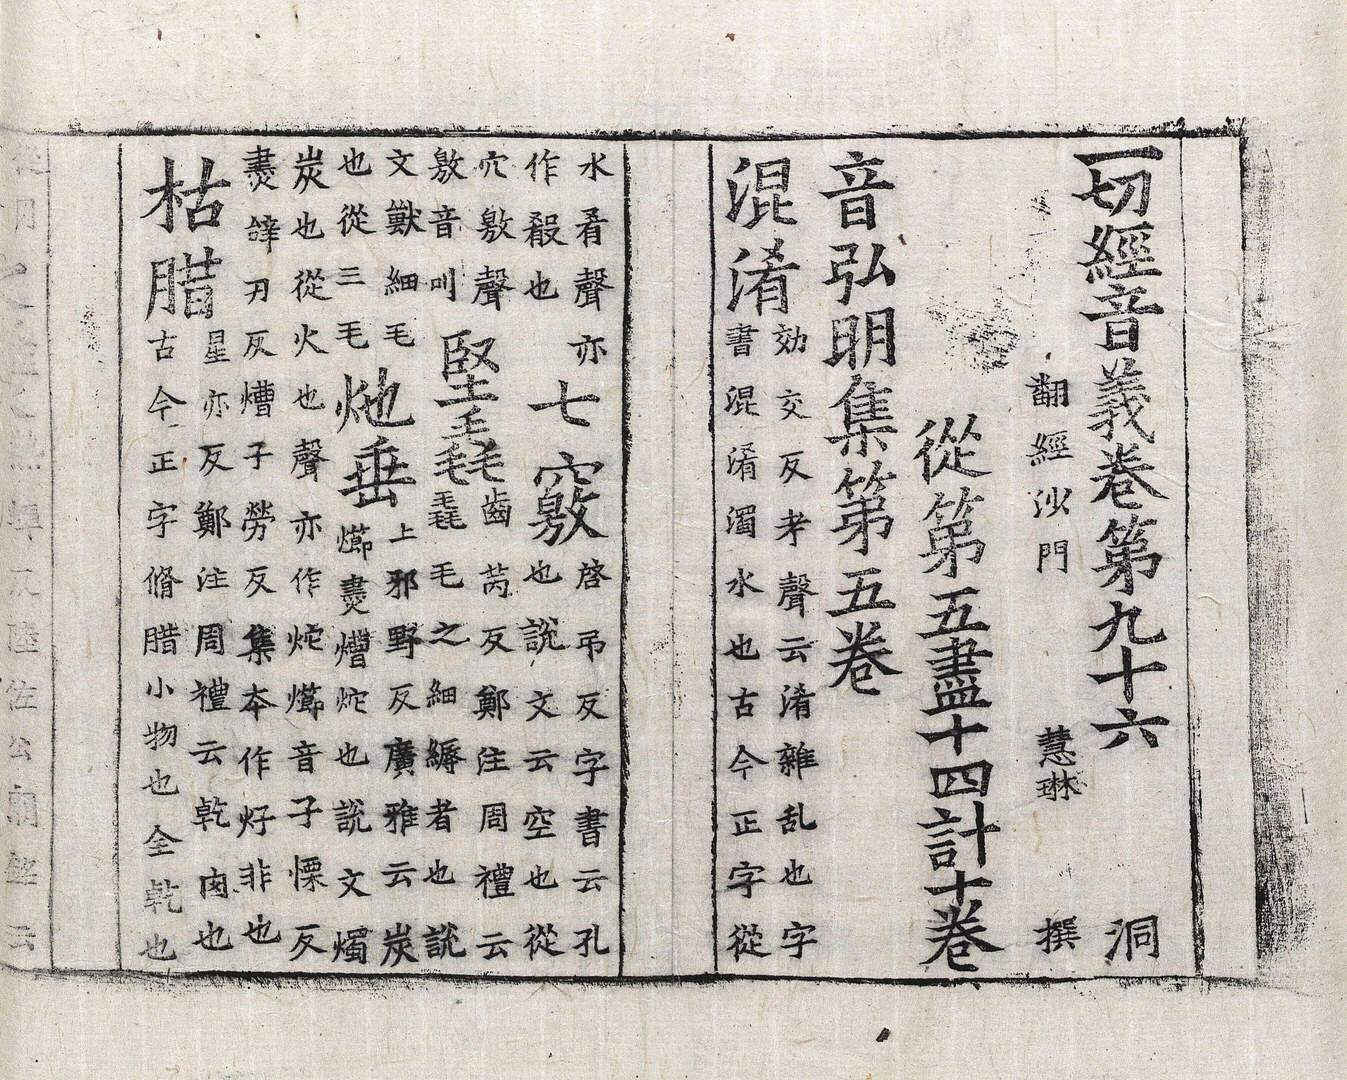 一切經音義卷第九十六 洞
翻經沙門 慧琳 撰
從第五盡十四計十卷
音弘明集第五卷
混淆 効交反孝聲云淆雜乱也字
書混淆濁水也古今正字從
水肴聲亦
作殽也
七竅 啓弔反字書云孔
也說文云空也從
穴敫聲
敫音叫
堅毳 齒芮反鄭注周禮云
毳毛之細縟者也說
文獸細毛
也從三毛
灺垂 上邪野反廣雅云炭
㸅燼熷炨也說文燭
炭也從火也聲亦作炨㸅音子慄反
燼辝刃反熷子勞反集本作好非也
枯腊 星亦反鄭注周禮云乾肉也
古今正字脩腊小物也全乾也